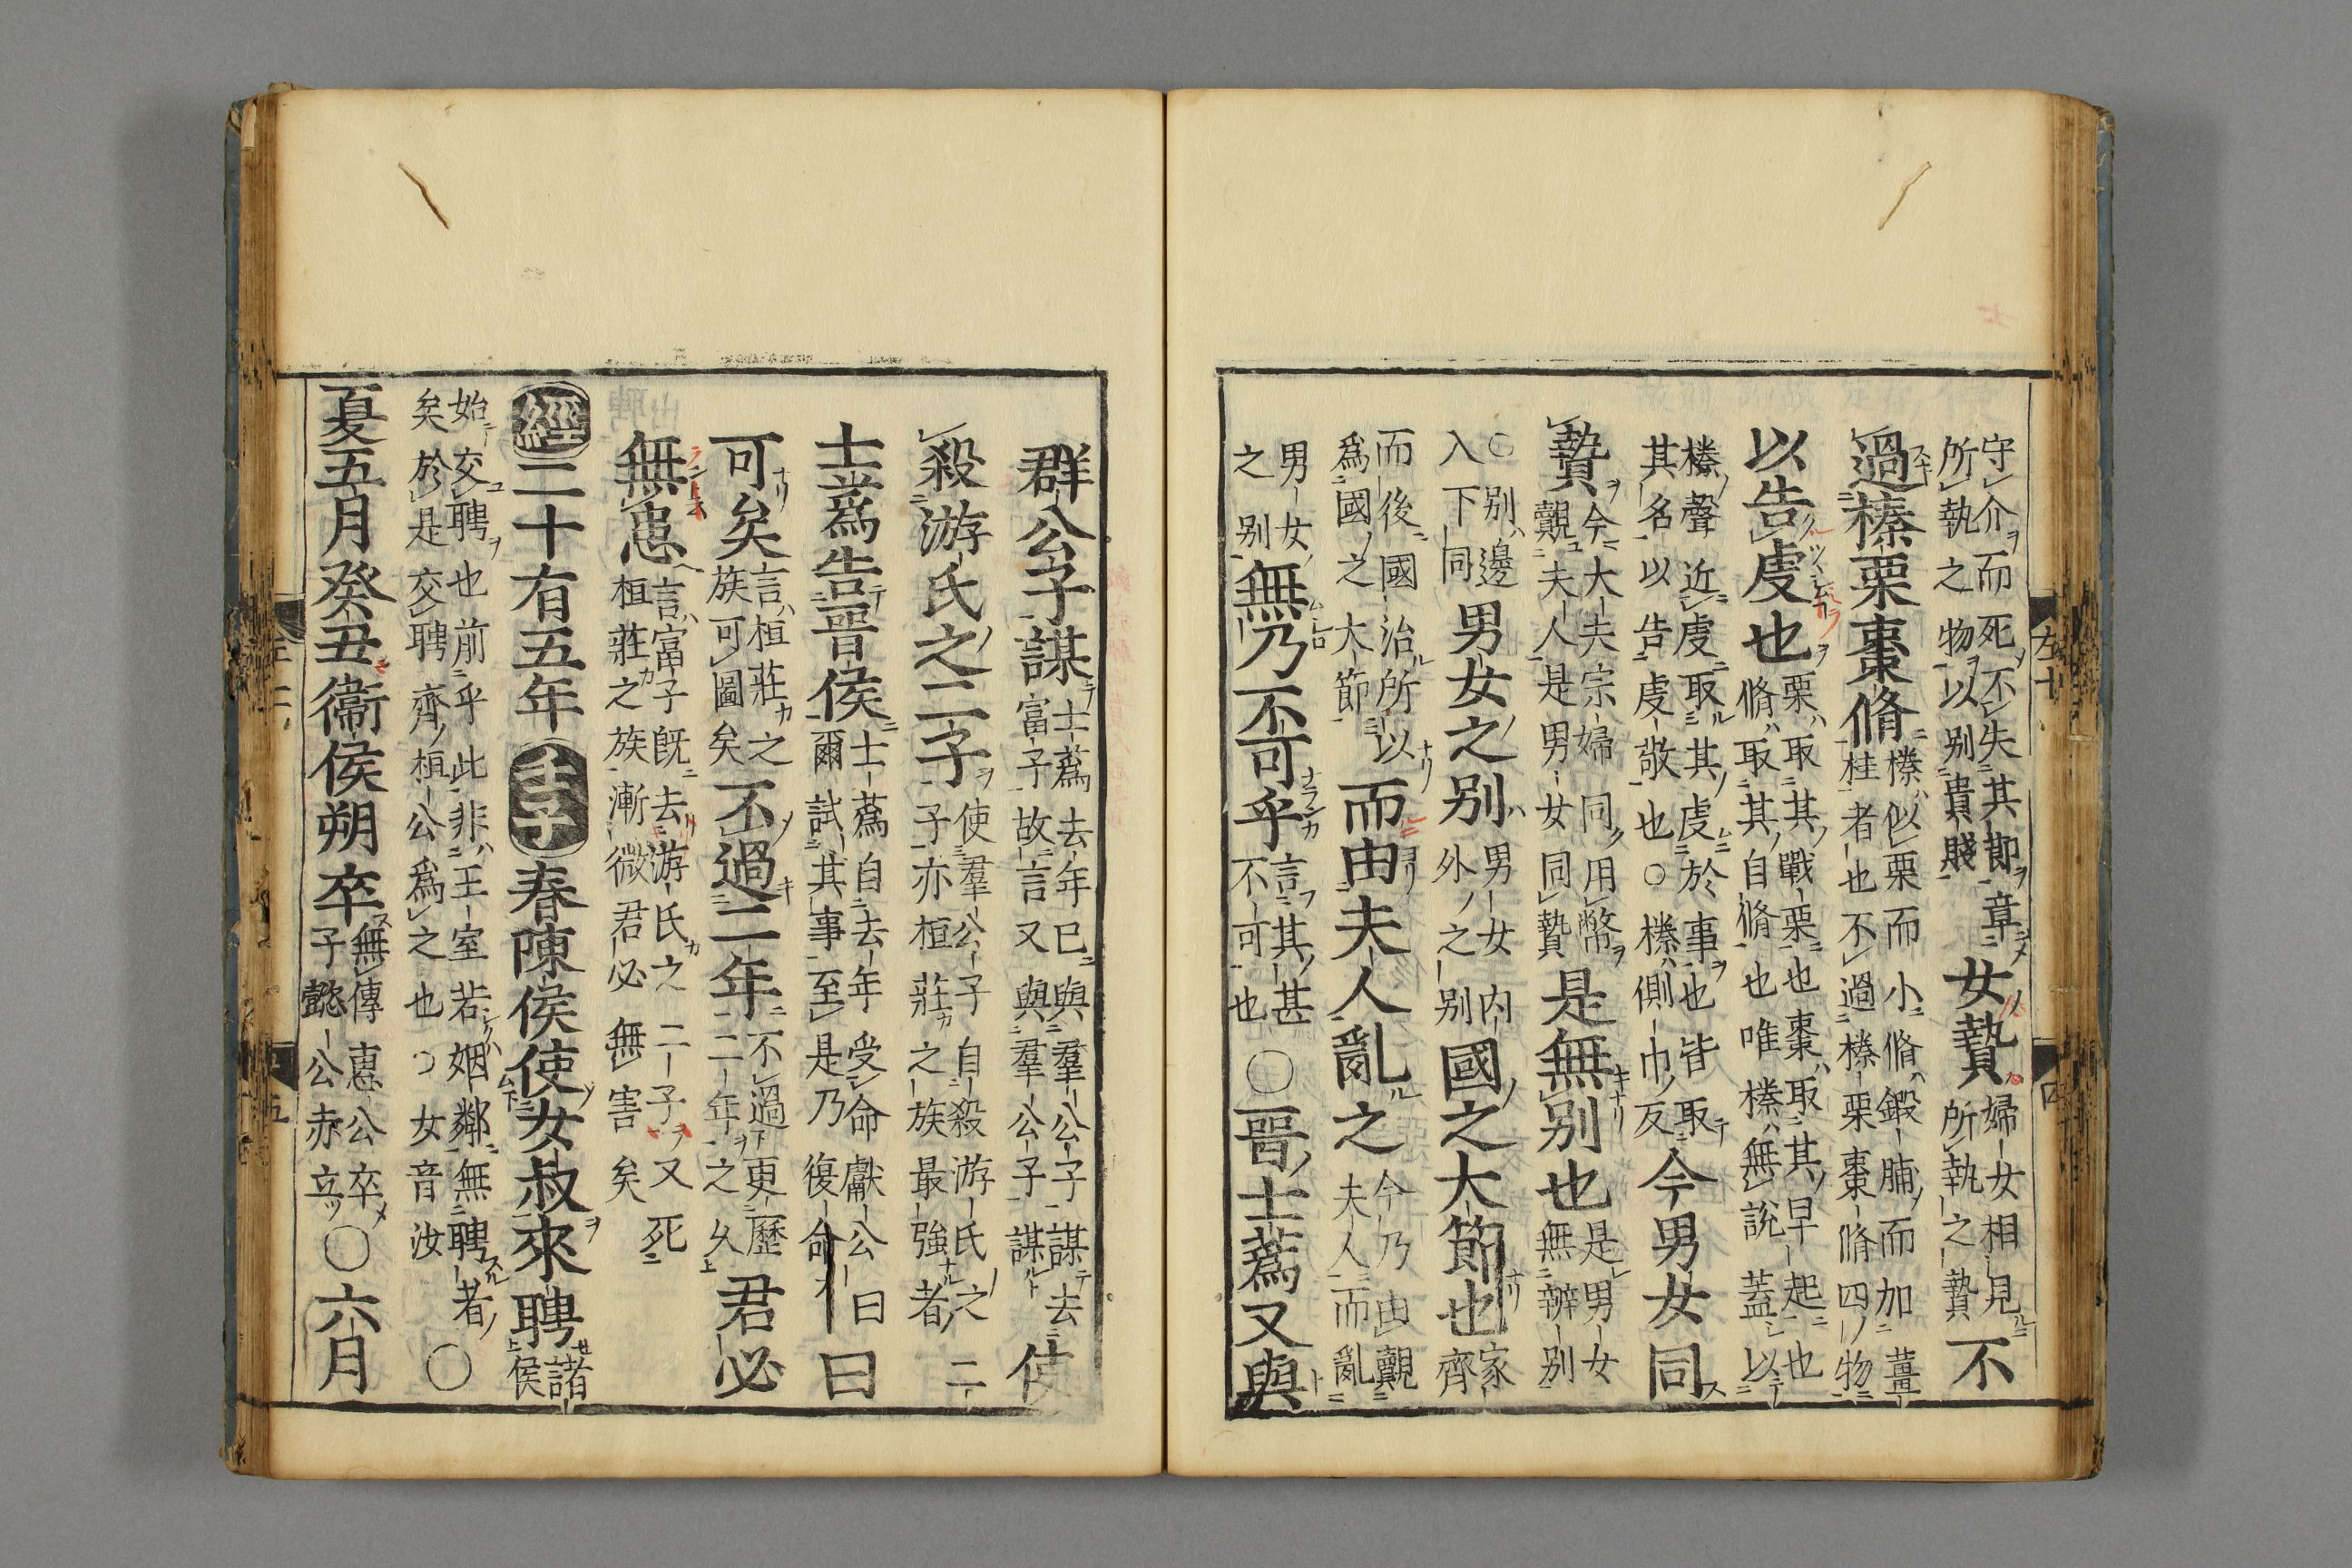 守介而死不失其節章
所執之物以別貴賤
女贄
婦女相見
所執之贄
不
過榛栗棗脩
榛似栗而小脩鍛脯而加薑
桂者也不過榛栗棗脩四物
以告虔也
栗取其戰栗也棗取其早起也
脩取其自脩也唯榛無說蓋以
榛聲近虔取其虔於事也皆取
其名以告虔敬也○榛側巾反
今男女同
贄
今大夫宗婦同用幣
覿夫人是男女同贄
是無別也
是男女
無辨別
○別邊
入下同
男女之別
男女內
外之別
國之大節也
家
齊
而後國治所以
為國之大節
而由夫人亂之
今乃由覿
夫人而亂
男女
之別
無乃不可乎
言其甚
不可也
○晉士蒍又與
群公子謀
士蒍去年已與羣公子謀去
富子故言又與羣公子謀
使
殺游氏之二子
使羣公子自殺游氏之二
子亦桓莊之族最強者
士蒍告晉侯
士蒍自去年受命獻公曰
爾試其事至是乃復命
曰
可矣
言桓莊之
族可圖矣
不過二年
不過更歷
二年之久
君必
無患
言富子既去游氏之二子又死
桓莊之族漸微君必無害矣
經二十有五年
春陳侯使女叔來聘
諸
侯
始交聘也前乎此非王室若姻鄰無聘者
矣於是交聘齊桓公為之也○女音汝
○
夏五月癸丑衞侯朔卒
無傳惠公卒
子懿公赤立
○六月